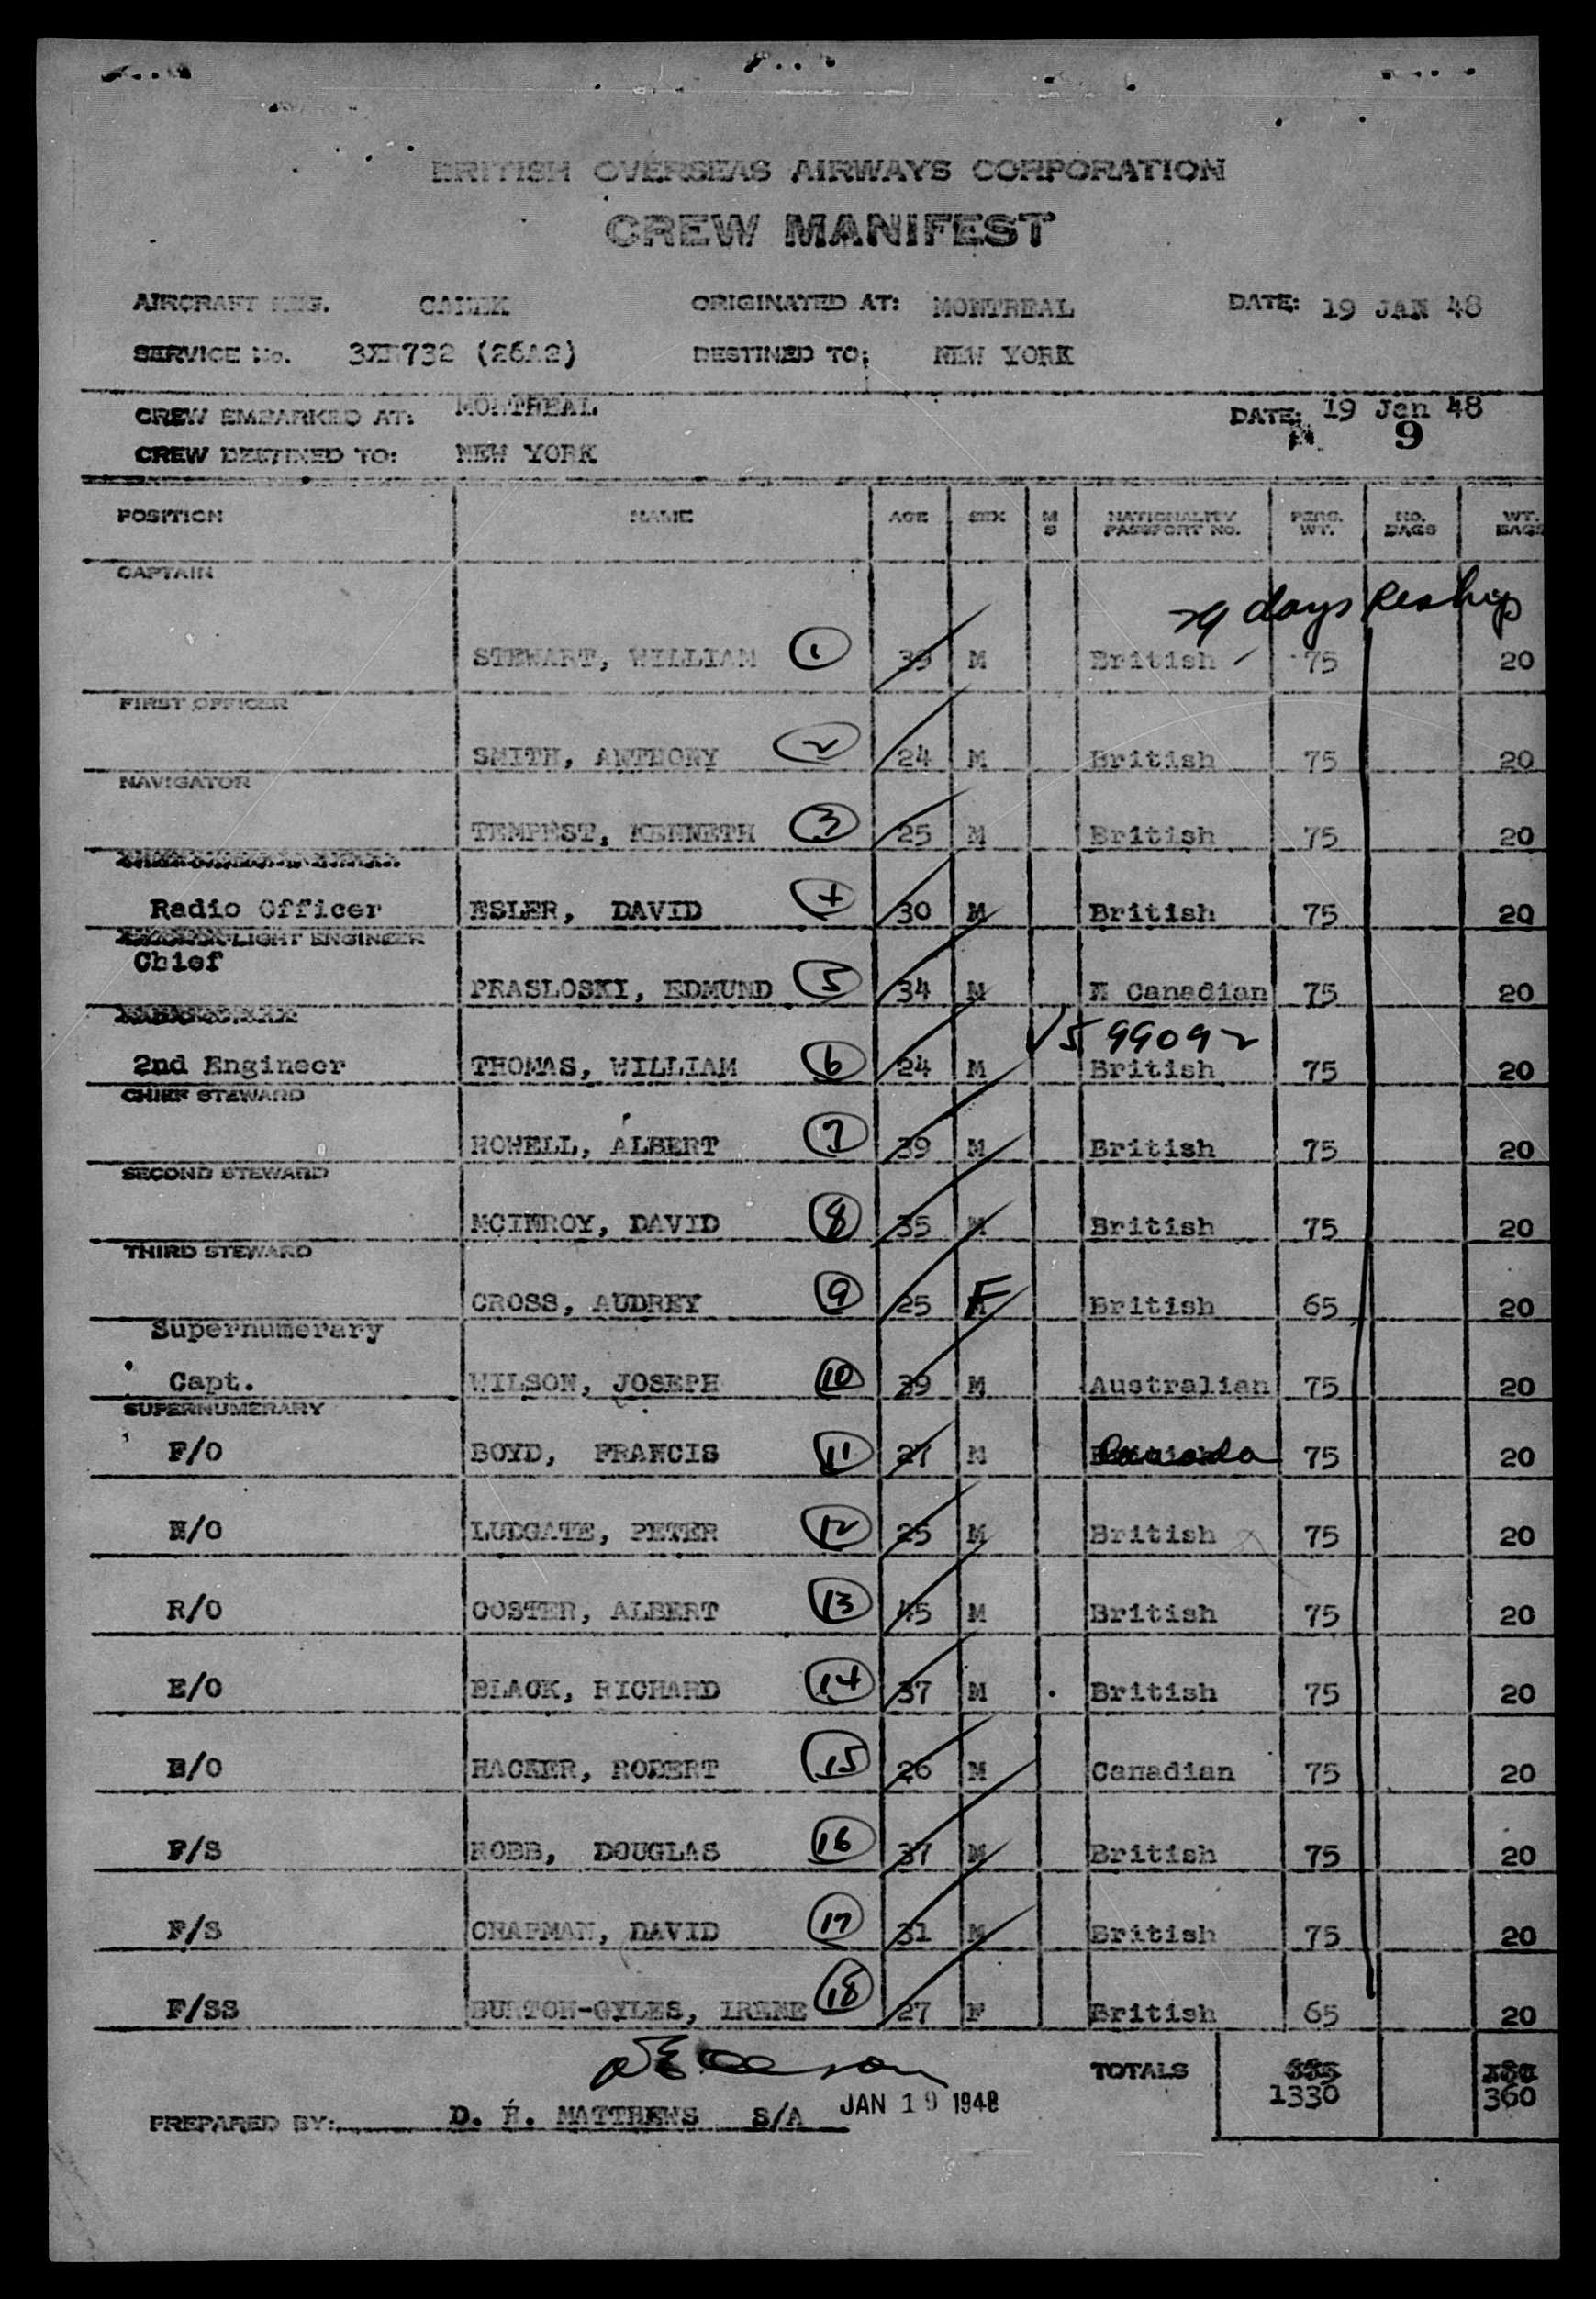 BRITISH OVERSEAS AIRWAYS CORPORATION
CREW MANIFEST
AIRCRAFT REG. ORIGINATED AT: MONTREAL DATE: 19 JAN 48
SERVICE No. (26A2) DESTINED TO: NEW YORK
CREW EMBARKED AT: MONTREAL DATE: 19 Jan 48
9
CREW DESTINED TO: NEW YORK
POSITION NAME AGE SEX M S NATIONALITY PASSPORT NO. PERS. WT. NO. BAGS WT. BAGS
CAPTAIN
29 days Reship
STEWART, WILLIAM 1 39 M British 75 20
FIRST OFFICER
SMITH, ANTHONY 2 24 M British 75 20
NAVIGATOR
TEMPEST, KENNETH 3 25 M British 75 20
Radio Officer ESLER, DAVID 4 30 M British 75 20
FLIGHT ENGINEER
Chief
PRASLOSKI, EDMUND 5 34 M Canadian 75 20
V599092
2nd Engineer THOMAS, WILLIAM 6 24 M British 75 20
CHIEF STEWARD
HOWELL, ALBERT 7 39 M British 75 20
SECOND STEWARD
MCINROY, DAVID 8 35 M British 75 20
THIRD STEWARD
CROSS, AUDREY 9 25 F British 65 20
Supernumerary
Capt. WILSON, JOSEPH 10 39 M Australian 75 20
SUPERNUMERARY
F/O BOYD, FRANCIS 11 27 M Canada 75 20
N/O LUDGATE, PETER 12 25 M British 75 20
R/O COSTER, ALBERT 13 45 M British 75 20
E/O BLACK, RICHARD 14 37 M British 75 20
E/O HACKER, ROBERT 15 26 M Canadian 75 20
F/S ROBB, DOUGLAS 16 37 M British 75 20
F/S CHAPMAN, DAVID 17 31 M British 75 20
F/SS BURTON-GYLES, IRENE 18 27 F British 65 20
TOTALS 1330 360
PREPARED BY: D. E. MATTHEWS S/A JAN 19 1948